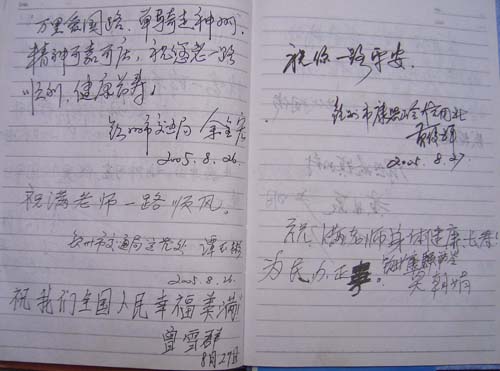 万里爱国路，单骑走神州，
精神可嘉可庆，祝您老一路
顺利，健康长寿！
钦州市交通局
2005.8.26.
祝满老师一路顺风。
钦州市交通局
2005.8.26.
祝我们全国人民幸福美满！
曾雪群
8月27日
祝你一路平安.
钦州市康熙岭信用社
2005.8.27
祝满老师身体健康长寿！
为民办正事。
吴朝娟